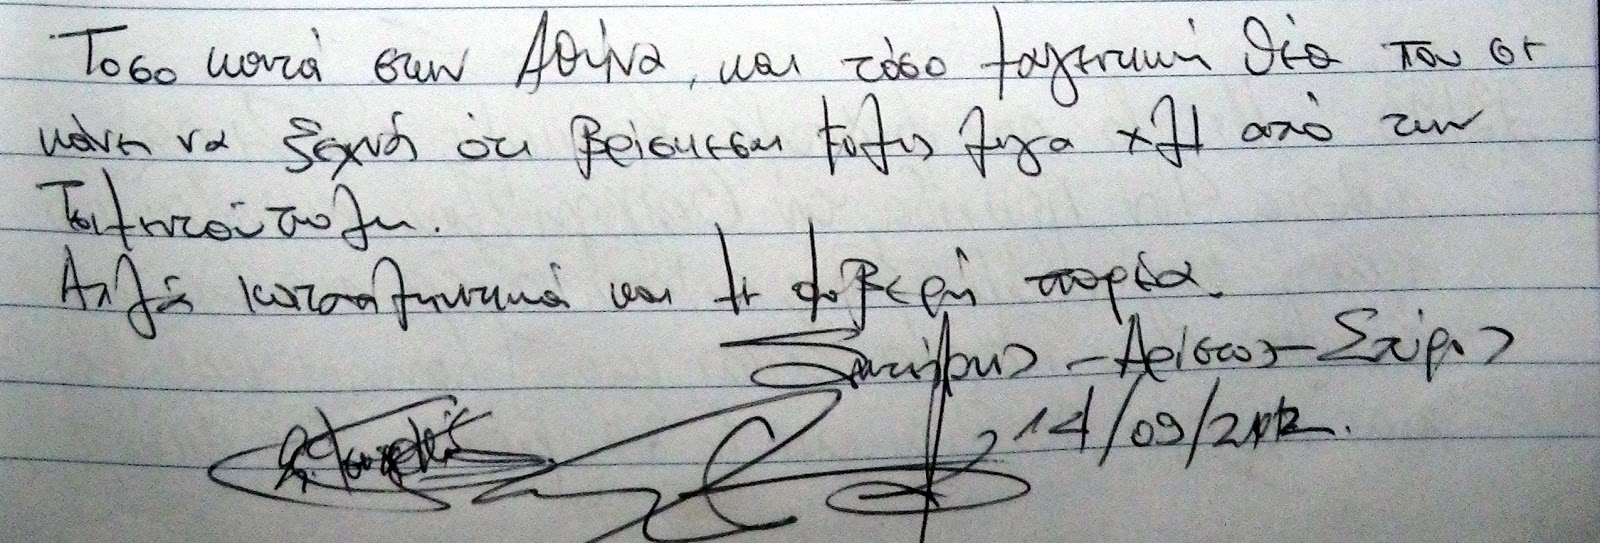 Τοσο κοντά στην Αθήνα, και τόσο μαγευτική θέα που σε
κάνει να ξεχνά ότι βρίσκεσαι μόλις λίγα χλμ από την
Τσιμεντούπολη.
Απλά καταπληκτικά και με φοβερή παρέα.
Σωτήρης - Αρίστος - Σπύρος
14/09/2012.